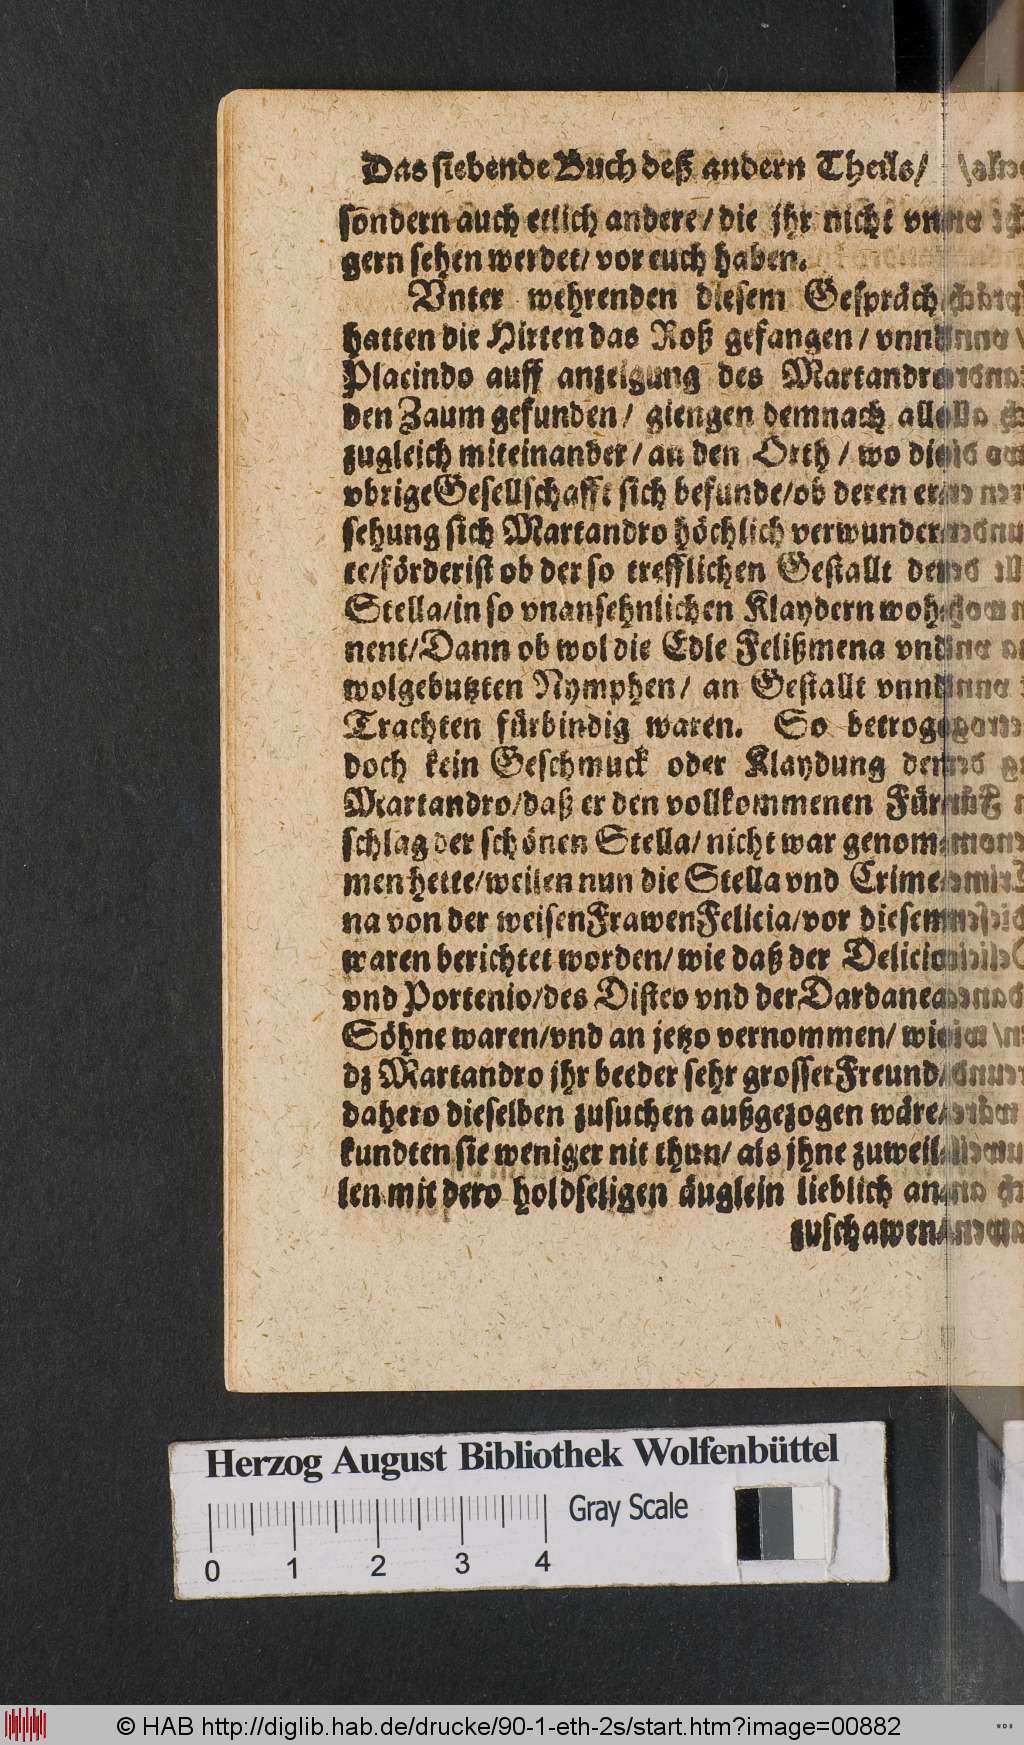 Das siebende Buch deß andern Theils/
sondern auch etlich andere/ die jhr nicht vn-
gern sehen werdet/ vor euch haben.
Vnter wehrenden diesem Gespräch/
hatten die Hirten das Roß gefangen/ vnnd
Placindo auff anzeigung des Martandro
den Zaum gefunden/ giengen demnach alle
zugleich miteinander/ an den Orth/ wo die
vbrige Gesellschafft sich befunde/ ob deren er-
sehung sich Martandro höchlich verwunder-
te/ förderist ob der so trefflichen Gestallt der
Stella/ in so vnansehnlichen Klaydern woh-
nent/ Dann ob wol die Edle Felißmena vnd
wolgebutzten Nymphen/ an Gestallt vnnd
Trachten fürbindig waren. So betrog
doch kein Geschmuck oder Klaydung den
Martandro/ daß er den vollkommenen Für-
schlag der schönen Stella/ nicht war genom-
men hette/ weilen nun die Stella vnd Crime-
na von der weisen Frawen Felicia/ vor diesem
waren berichtet worden/ wie daß der Delicio
vnd Portenio/ des Disteo vnd der Dardanea
Söhne waren/ vnd an jetzo vernommen/ wie
dz Martandro jhr beeder sehr grosser Freund/
dahero dieselben zusuchen außgezogen wäre/
kundten sie weniger nit thun/ als jhne zuwei-
len mit dero holdseligen äuglein lieblich an
zuschawen/
Herzog August Bibliothek Wolfenbüttel
Gray Scale
0 1 2 3 4
© HAB http://diglib.hab.de/drucke/90-1-eth-2s/start.htm?image=00882